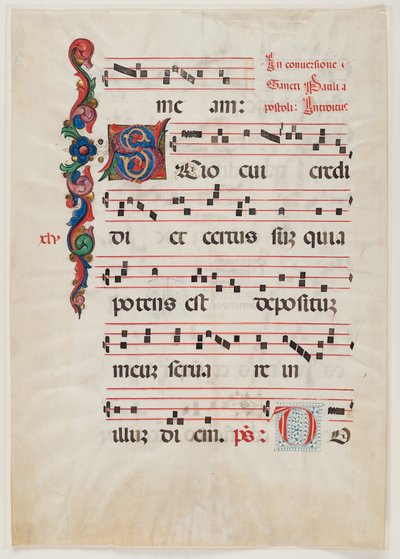 In conversione
Sancti Pauli a
postoli: Introitus
me am:
Scio cui credi
di et certus suz quia
xlv
potens est deposituz
meuz serua re in
illuz di em. ps: D